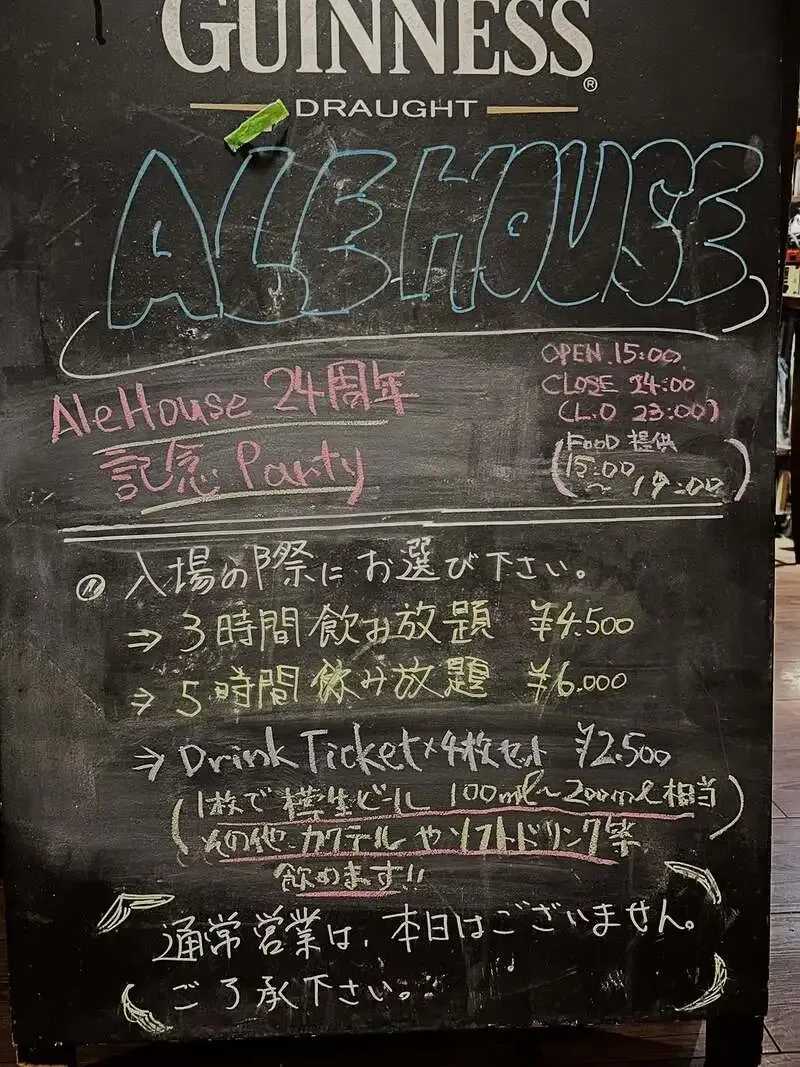 GUINNESS®
DRAUGHT
ALE HOUSE
AleHouse 24周年
記念 Party
OPEN 15:00
CLOSE 24:00
(L.O 23:00)
(FOOD 提供
15:00
~ 19:00)
入場の際にお選び下さい。
⇒ 3時間飲み放題 ¥4.500
⇒ 5時間飲み放題 ¥6.000
⇒ Drink Ticket×4枚セット ¥2.500
(1枚で樽生ビール 100ml~200ml相当
その他カクテルやソフトドリンク等)
飲めます!!
通常営業は、本日はございません。
ご了承下さい。